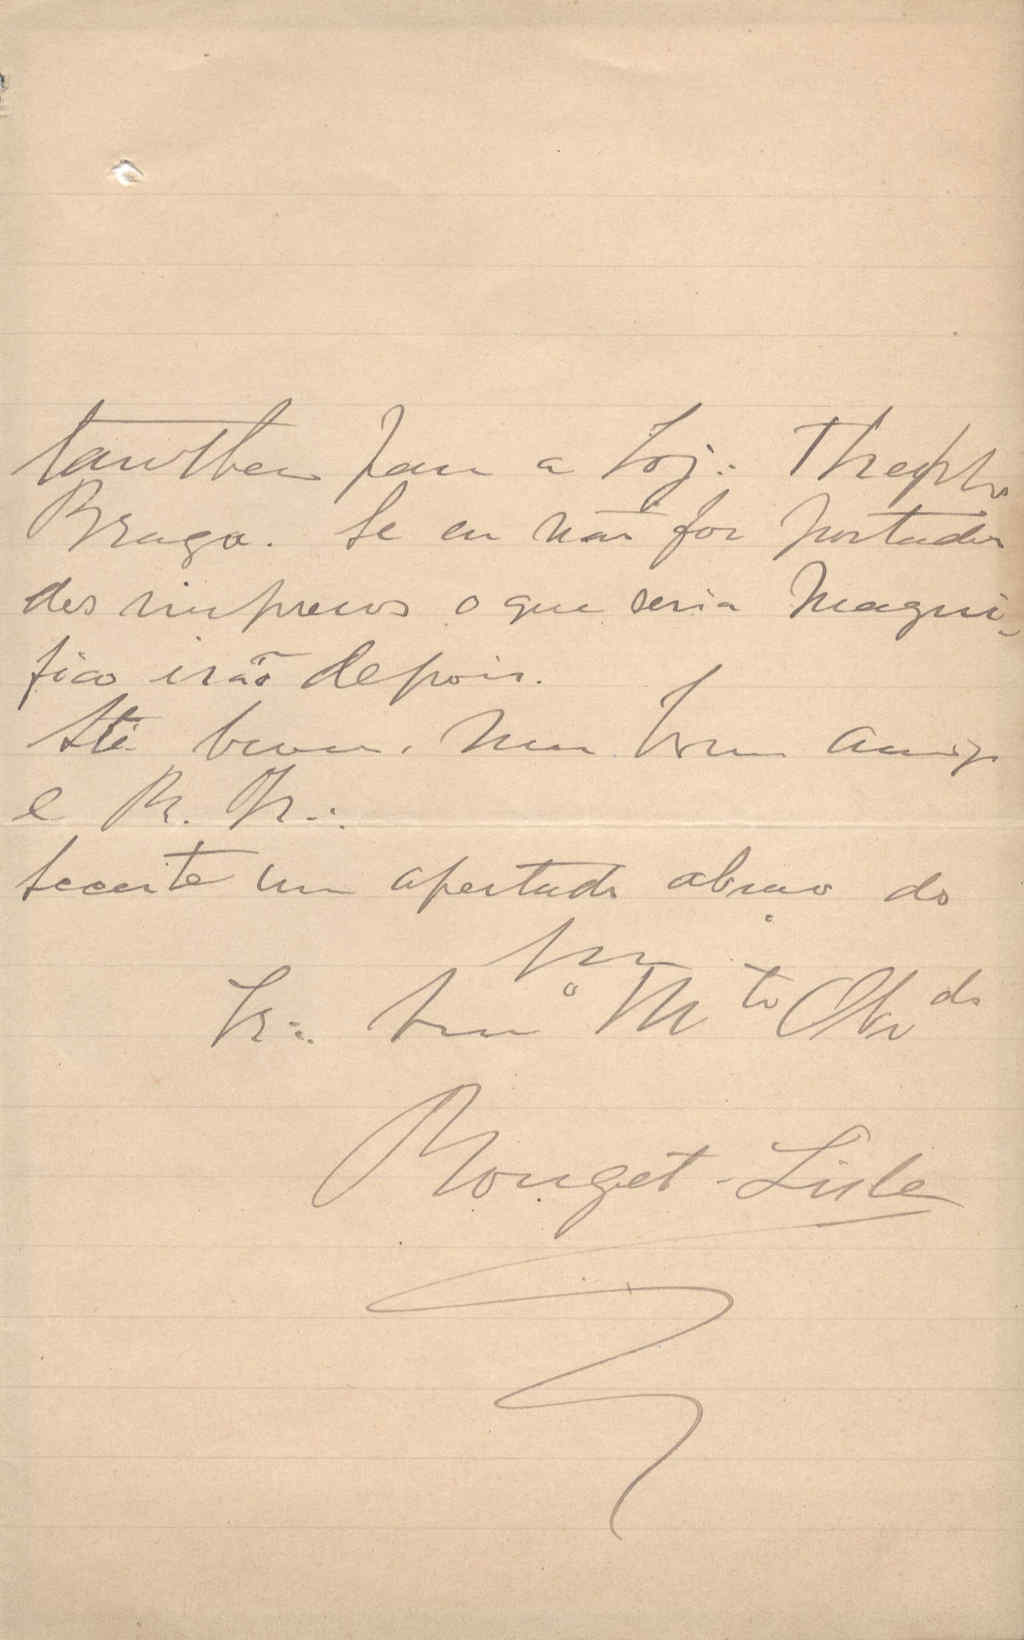 tambem para a Loj∴ Theophilo
Braga. Se eu não for portador
dos impressos o que seria magni-
fico irão depois.
Até breve. Meu bom amigo
e R. Ir∴
Acceite um apertado abraço do
seu
Ir∴ Am.º M.to Ob.do
Rouget-Lisle